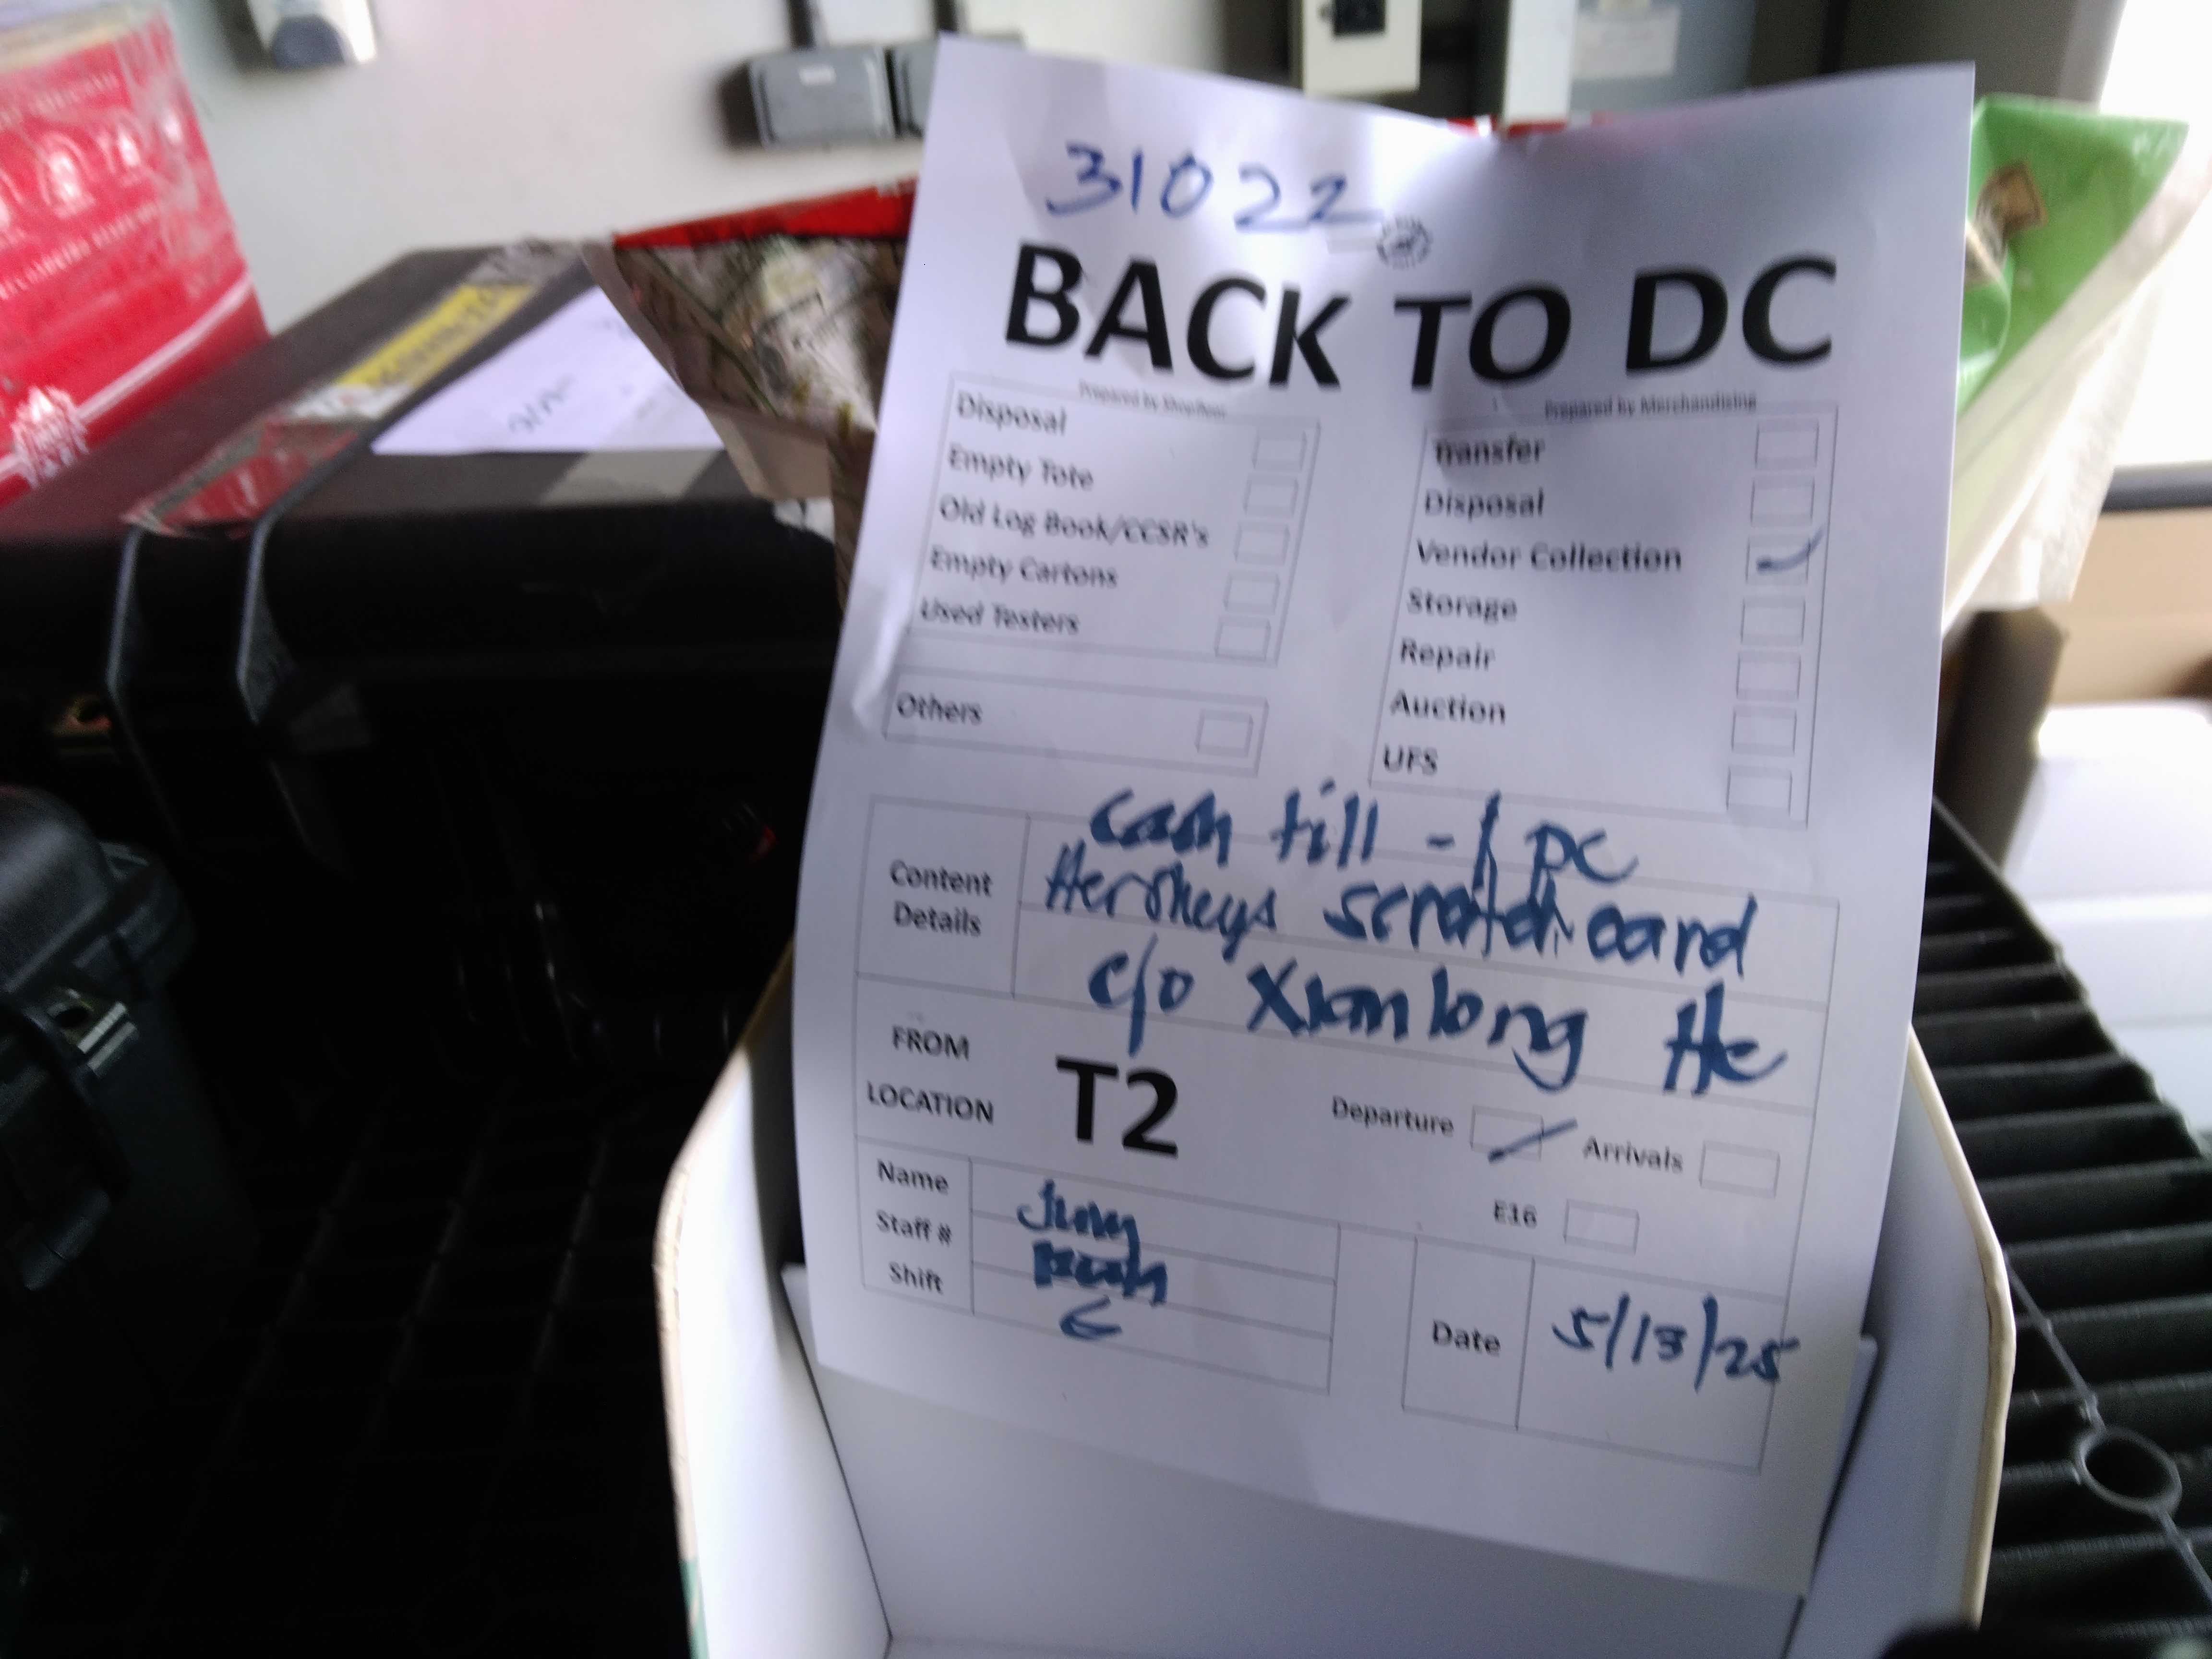 31022
BACK TO DC
Prepared by Merchandising
Disposal
Empty Tote
Old Log Book/CCSR's
Empty Cartons
Used Testers
Others
Transfer
Disposal
Vendor Collection
Storage
Repair
Auction
UFS
Content Details
Cash till - 1 pc
Hersheys scratch card
c/o Xianlong He
FROM LOCATION
T2
Departure
Arrivals
E16
Name
Staff #
Shift
Date
5/13/25